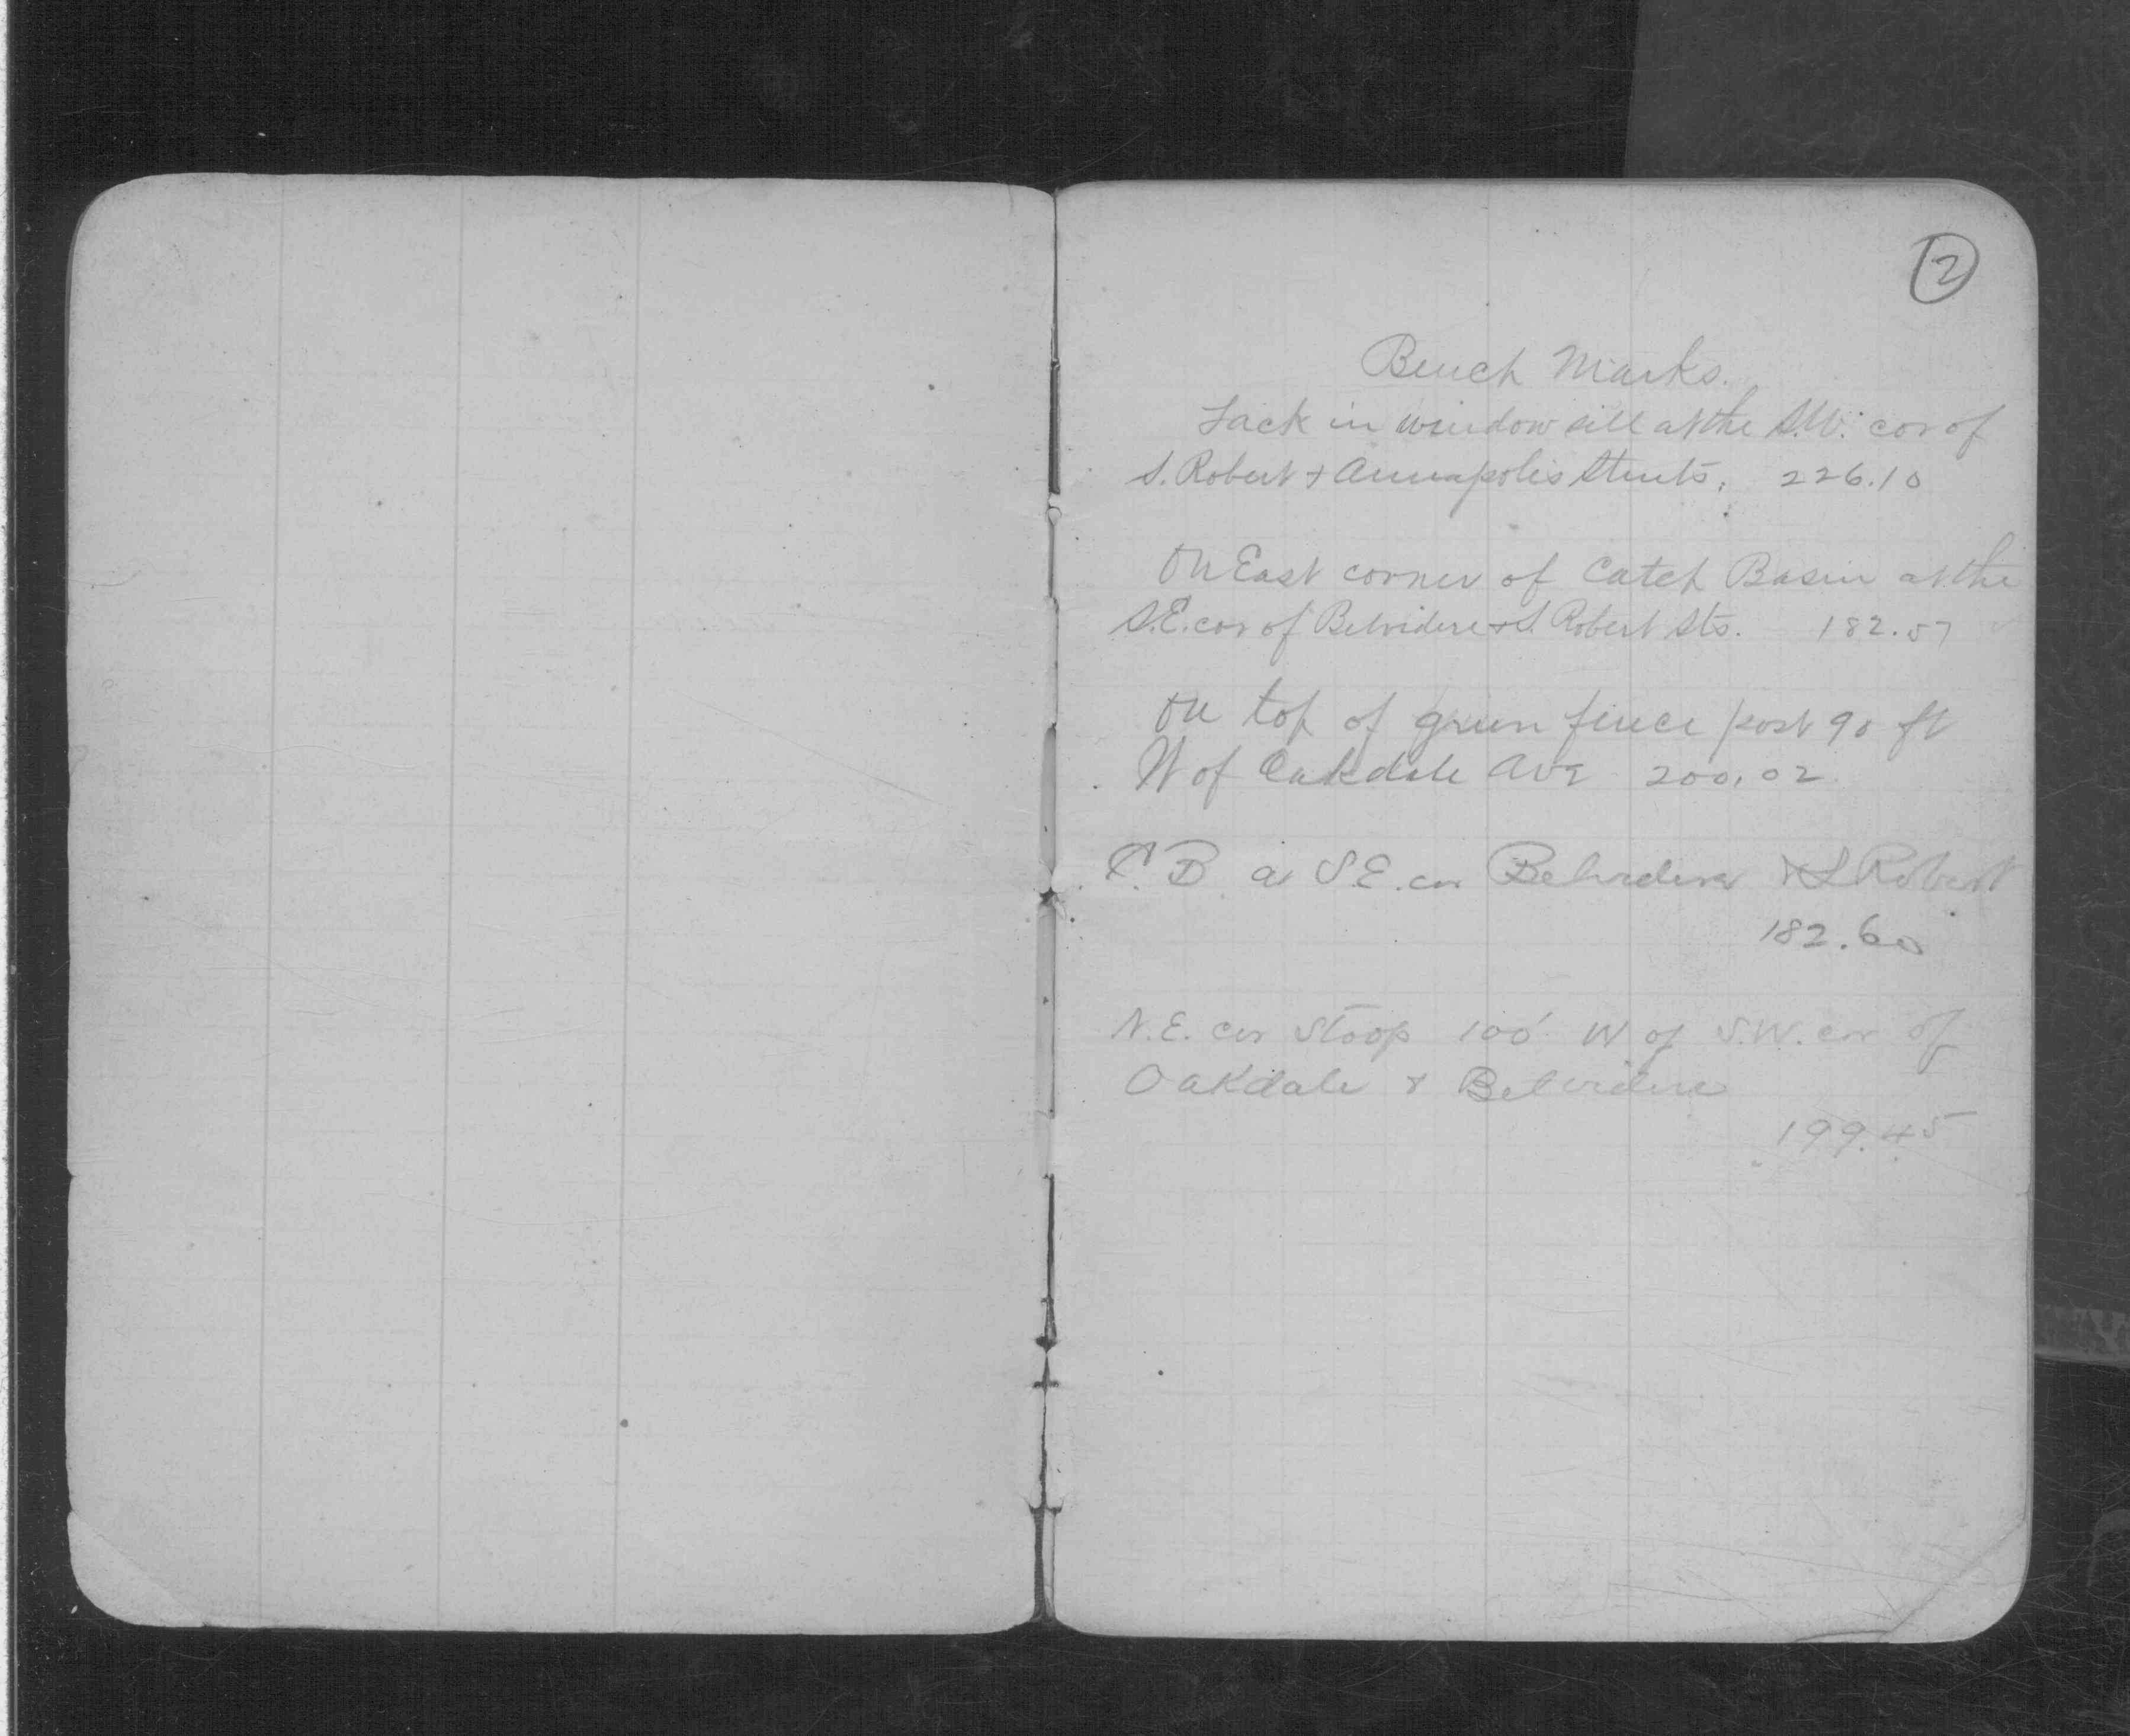 2
Bench Marks.
Tack in window sill at the S.W. cor of
S. Robert & Annapolis Streets. 226.10
On East corner of Catch Basin at the
S.E. cor of Belvidere & S. Robert Sts. 182.57
On top of green fence post 90 ft
W of Oakdale Ave 200.02
C.B. at S.E. cor Belvidere & S Robert
182.60
N.E. cor Stoop 100' W of S.W. cor of
Oakdale & Belvidere
199.45